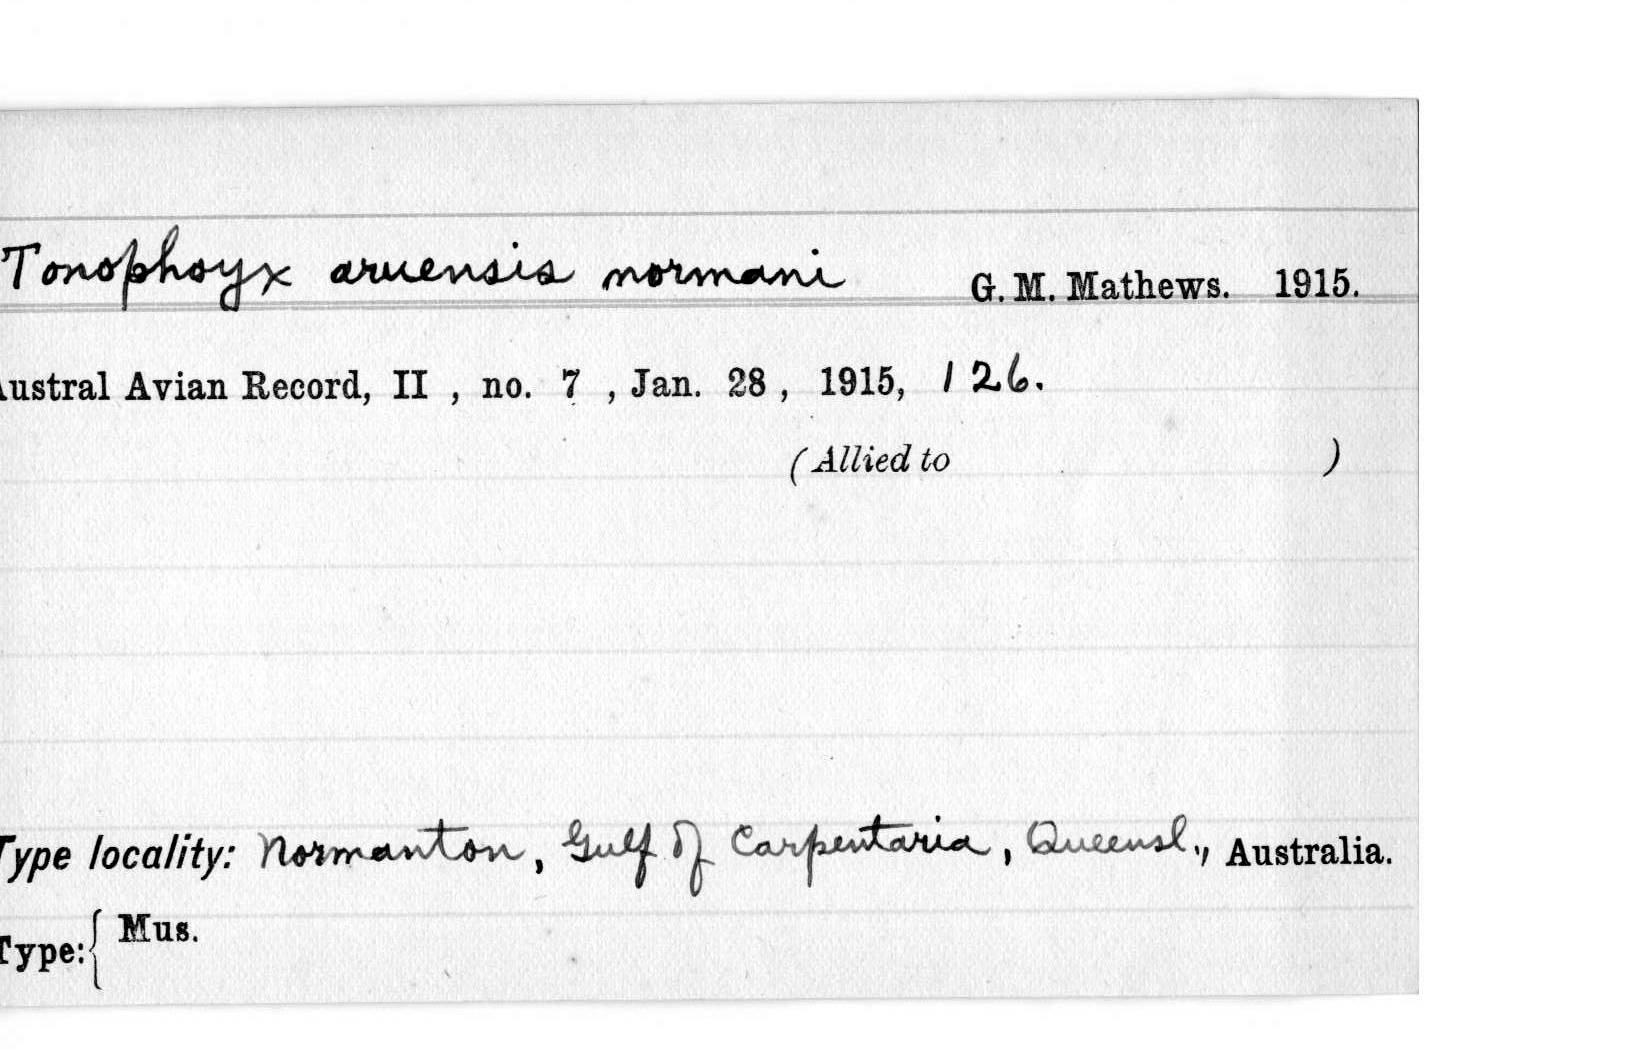 Tonophoyx aruensis normani G. M. Mathews. 1915.
Austral Avian Record, II , no. 7 , Jan. 28 , 1915, 126.
(Allied to )
Type locality: Normanton, Gulf of Carpentaria, Queensl., Australia.
Type:{ Mus.